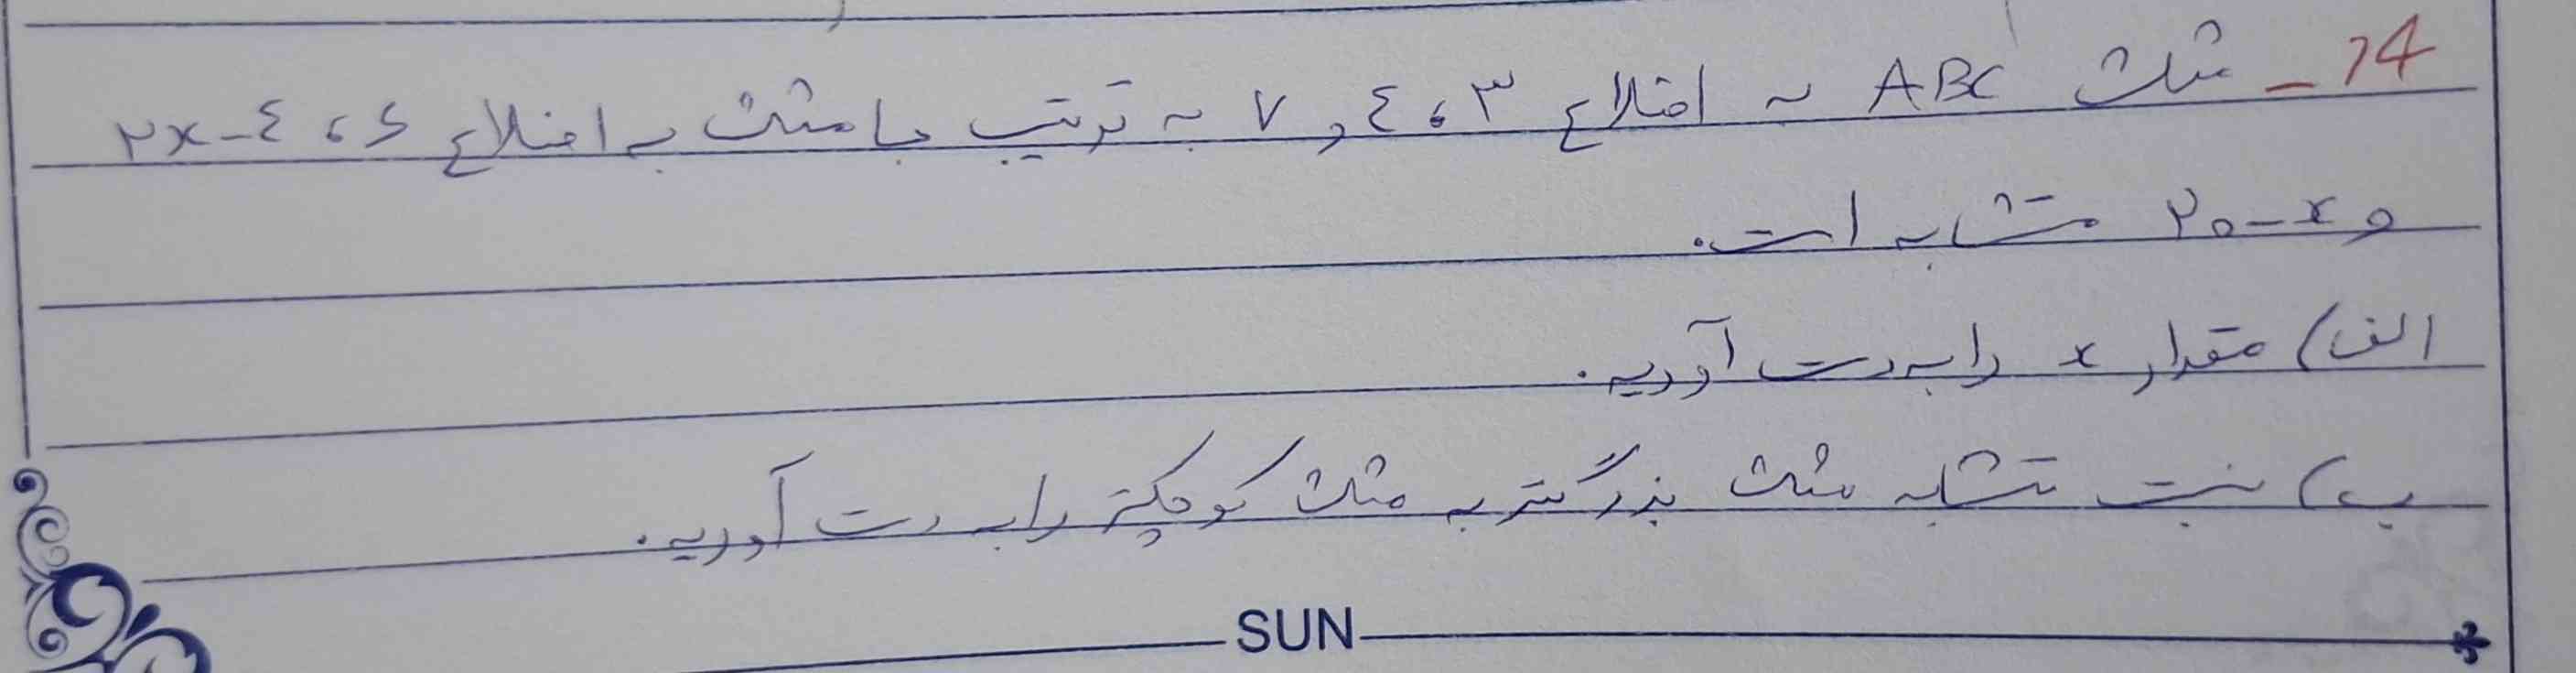 14 - مثلث ABC به اضلاع ۳، ٤ و ۷ به ترتیب با مثلث به اضلاع ۶، ۲x-٤
و ۲۰-x متشابه است.
الف) مقدار x را به دست آورید.
ب) نسبت تشابه مثلث بزرگتر به مثلث کوچکتر را به دست آورید.
SUN